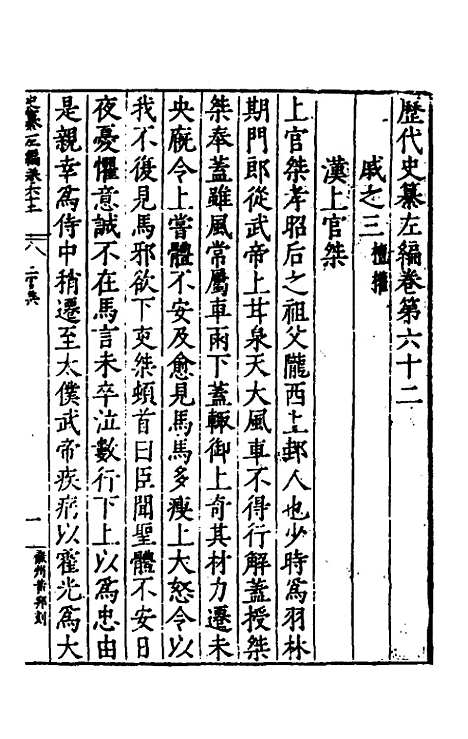 歷代史纂左編卷第六十二
戚之三 擅權
漢上官桀
上官桀孝昭后之祖父隴西上邽人也少時爲羽林
期門郎從武帝上甘泉天大風車不得行解蓋授桀
桀奉蓋雖風常屬車雨下蓋輒御上奇其材力遷未
央廄令上嘗體不安及愈見馬馬多瘦上大怒令以
我不復見馬邪欲下吏桀頓首曰臣聞聖體不安日
夜憂懼意誠不在馬言未卒泣數行下上以爲忠由
是親幸爲侍中稍遷至太僕武帝疾病以霍光爲大
史纂左編卷六十二
一